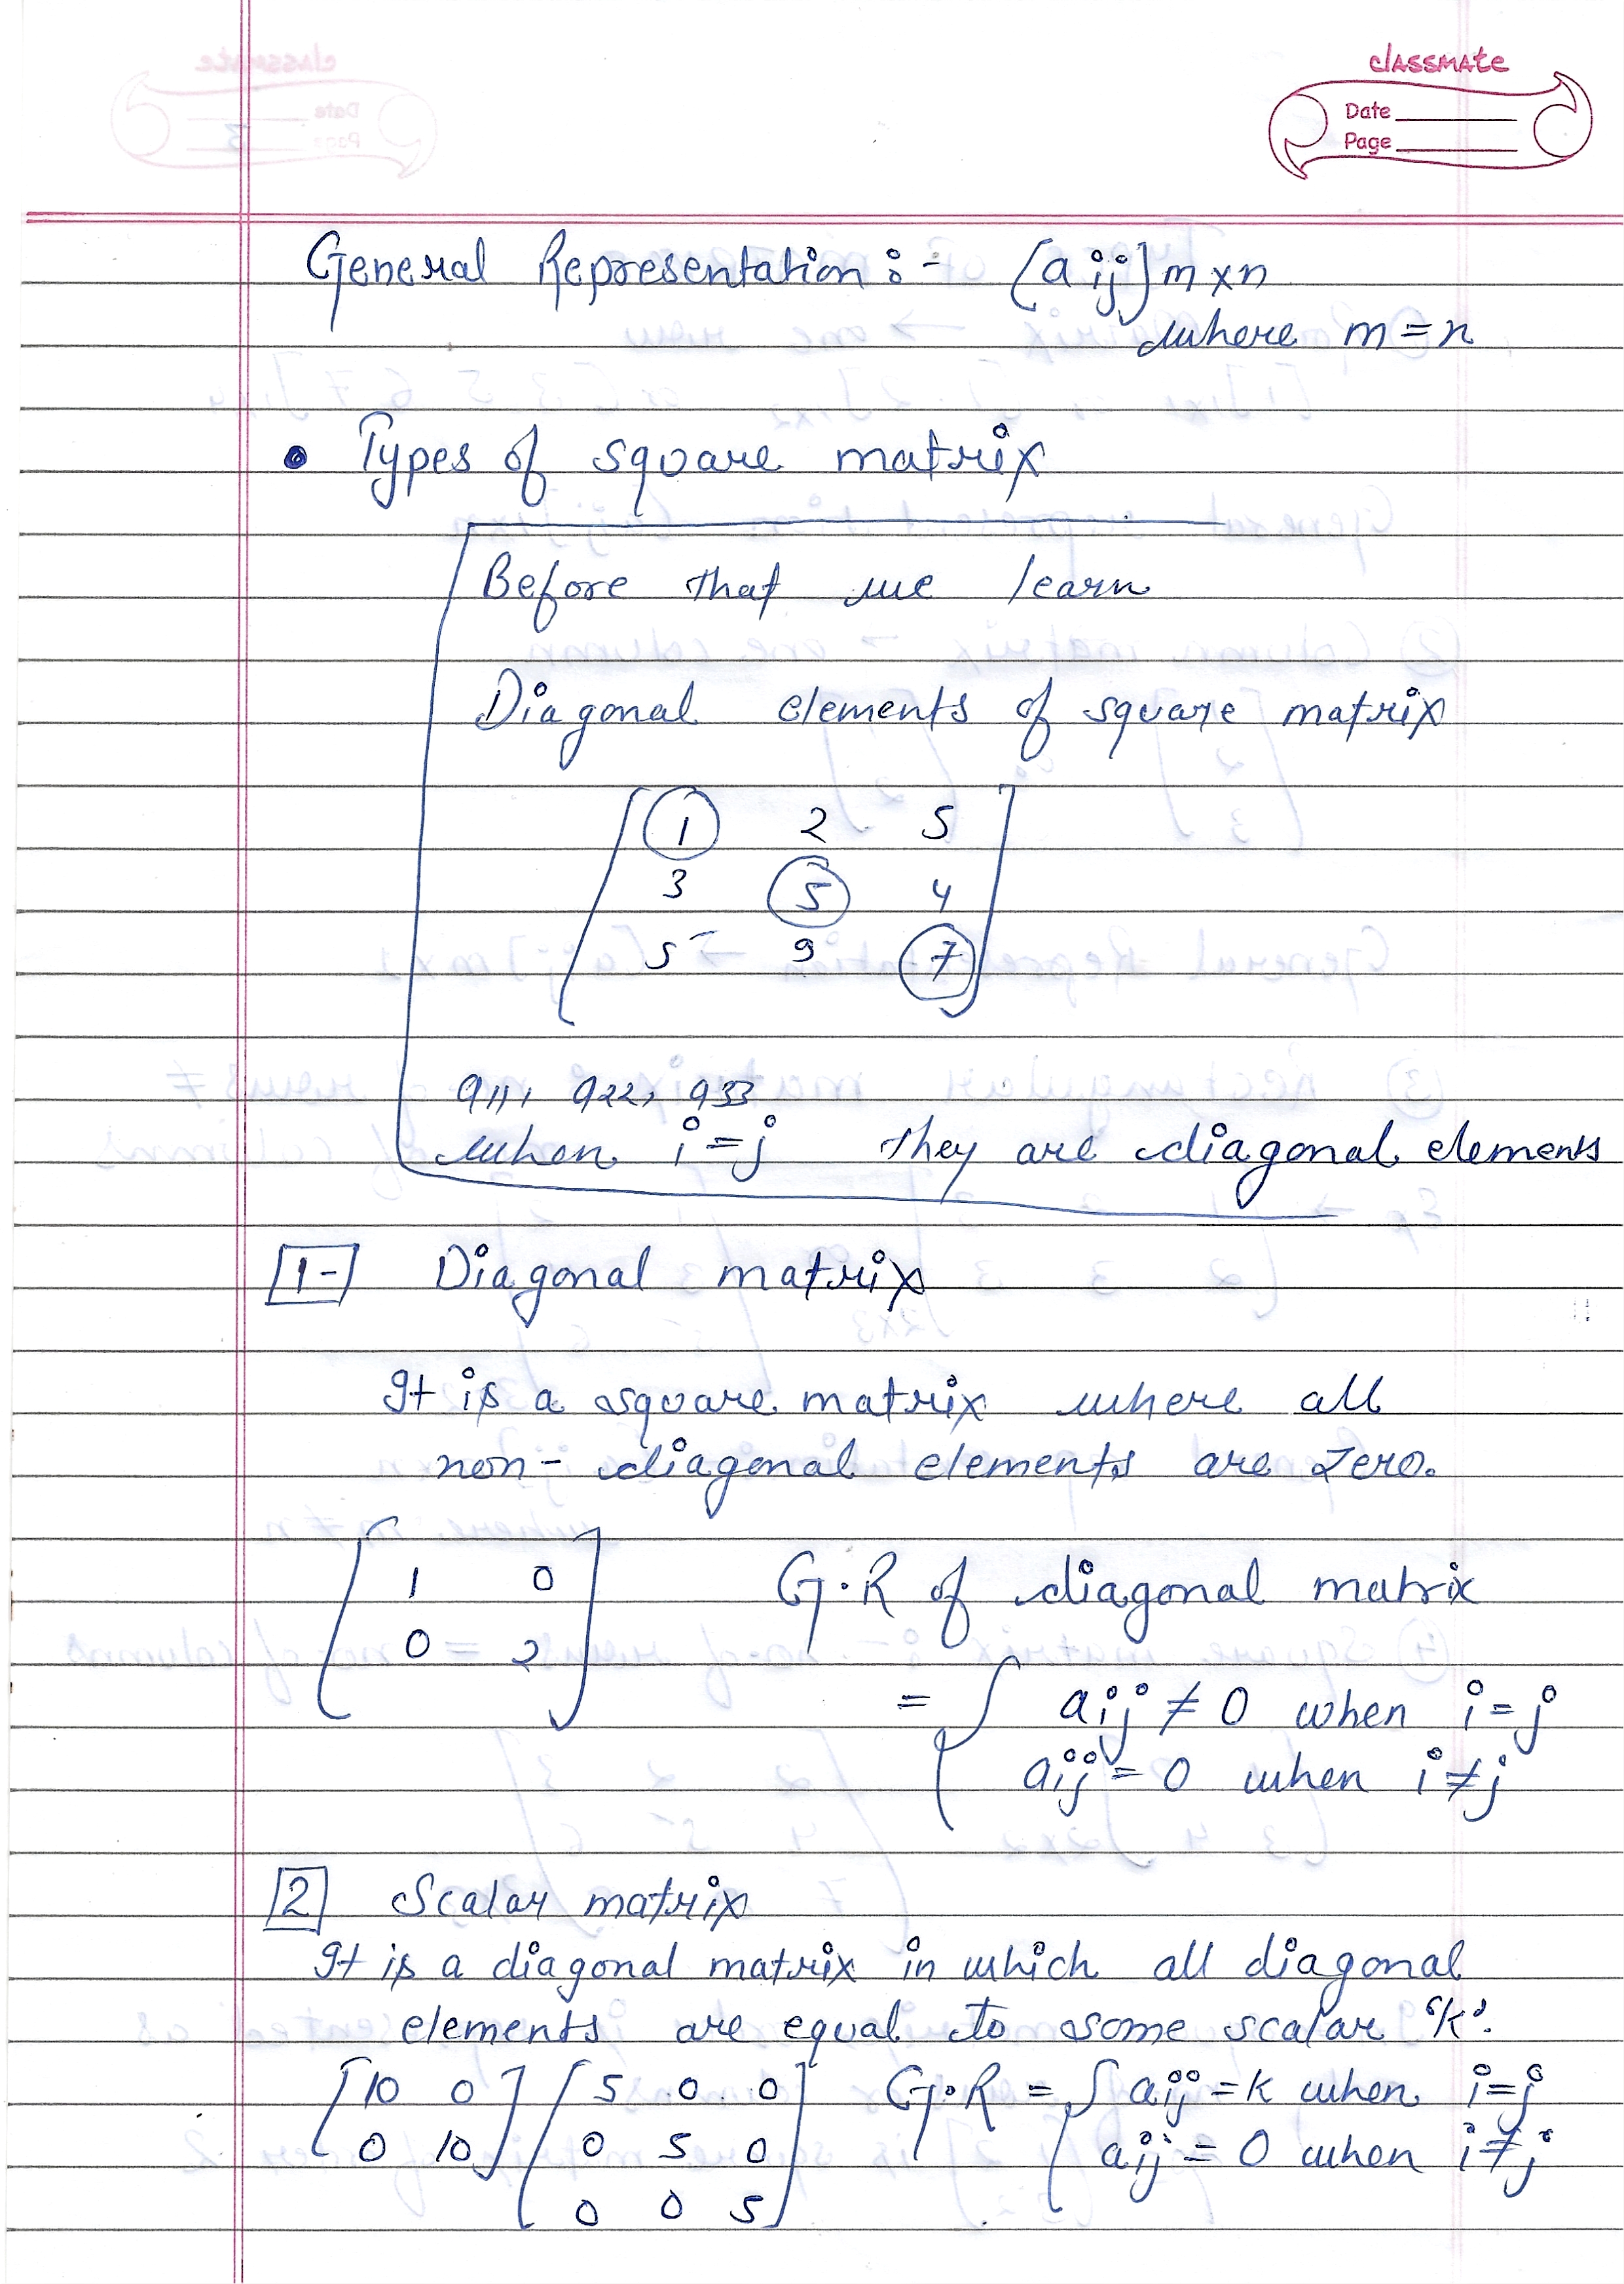 classmate
Date
Page
General Representation :- [aij] m×n
where m = n
• Types of square matrix
Before that we learn
Diagonal elements of square matrix
1 2 5
3 5 4
5 9 7
a11, a22, a33
when i = j they are diagonal elements
1- Diagonal matrix
It is a square matrix where all
non-diagonal elements are zero.
1 0
0 2
G.R of diagonal matrix
= { aij ≠ 0 when i = j
aij = 0 when i ≠ j
2 Scalar matrix
It is a diagonal matrix in which all diagonal
elements are equal to some scalar 'k'.
[10 0
0 10]
[5 0 0
0 5 0
0 0 5]
G.R = { aij = k when i = j
aij = 0 when i ≠ j